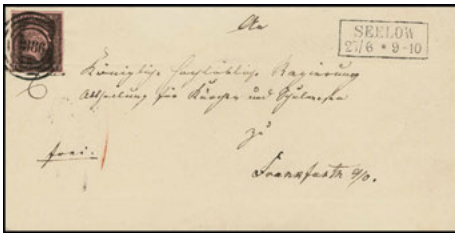 An
SEELOW
27/6 * 9-10
Königliche Hochlöbliche Regierung
Abtheilung für Kirchen und Schulwesen
zu
frei.
Frankfurth a/O.